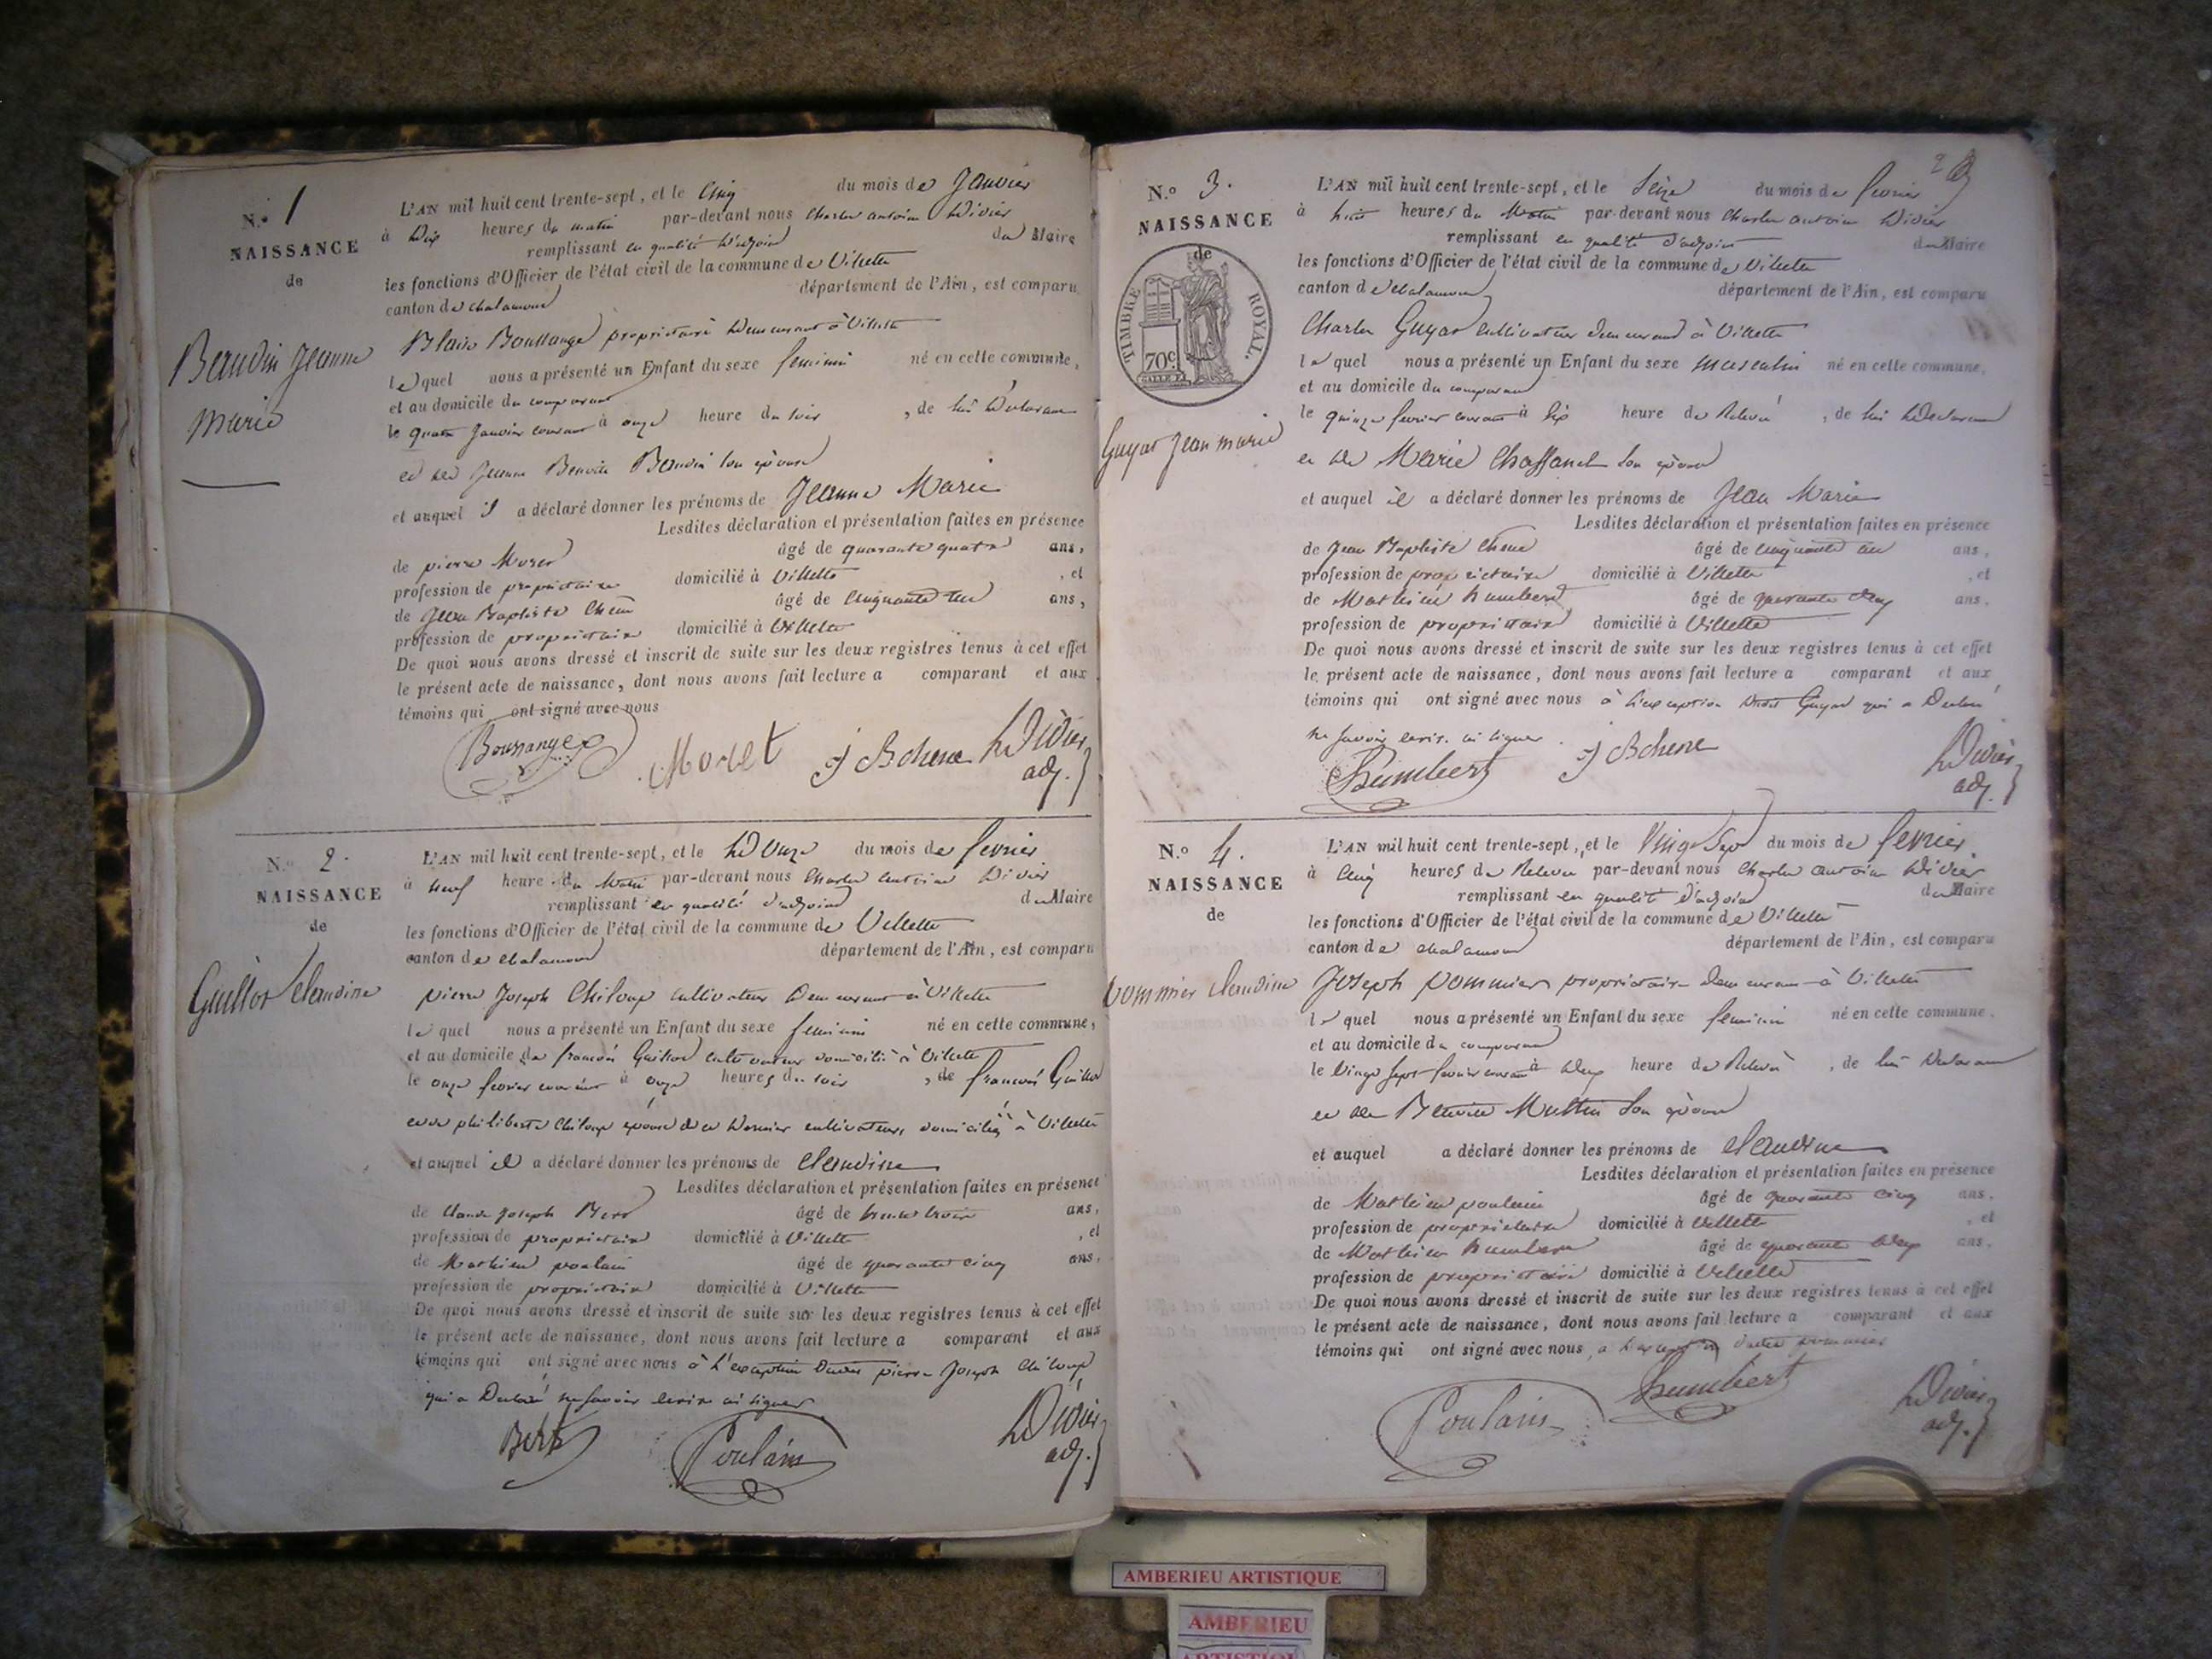 N.º 1
NAISSANCE
de
Baudin Jeanne
marie
L'AN mil huit cent trente-sept, et le Cinq du mois de Janvier
à dix heures du matin par-devant nous Charles antoine Didier
remplissant en qualité d'adjoint du Maire
les fonctions d'Officier de l'état civil de la commune de Villette
canton de chalamond département de l'Ain, est comparu
Blaise Boussange propriétaire demeurant à Villette
lequel nous a présenté un Enfant du sexe feminin né en cette commune,
et au domicile du comparant
le quatre Janvier courant à onze heure du soir, de lui déclarant
et de Jeanne Benoite Baudin son épouse
et auquel il a déclaré donner les prénoms de Jeanne Marie
Lesdites déclaration et présentation faites en présence
de pierre Moret âgé de quarante quatre ans,
profession de propriétaire domicilié à Villette, et
de Jean Baptiste Chêne âgé de cinquante un ans,
profession de propriétaire domicilié à Villette
De quoi nous avons dressé et inscrit de suite sur les deux registres tenus à cet effet
le présent acte de naissance, dont nous avons fait lecture a comparant et aux
témoins qui ont signé avec nous
Boussange Moret J B chene Didier
adj.
N.º 2.
NAISSANCE
de
Guillot Claudine
L'AN mil huit cent trente-sept, et le Douze du mois de fevrier
à neuf heure du Matin par-devant nous Charles antoine Didier
remplissant en qualité d'adjoint du Maire
les fonctions d'Officier de l'état civil de la commune de Villette
canton de chalamond département de l'Ain, est comparu
pierre Joseph Chiloup cultivateur demeurant à Villette
lequel nous a présenté un Enfant du sexe feminin né en cette commune,
et au domicile de francois Guillot cultivateur domicilié à Villette
le onze fevrier courant à onze heures du soir, de francois Guillot
et de philiberte chiloup épouse de ce dernier cultivateurs domiciliés à Villette
et auquel il a déclaré donner les prénoms de Claudine
Lesdites déclaration et présentation faites en présence
de Claude Joseph Bert âgé de trente trois ans,
profession de propriétaire domicilié à Villette, et
de Mathieu poulain âgé de quarante cinq ans.
profession de propriétaire domicilié à Villette
De quoi nous avons dressé et inscrit de suite sur les deux registres tenus à cet effet
le présent acte de naissance, dont nous avons fait lecture a comparant et aux
témoins qui ont signé avec nous à l'exception dudit pierre Joseph chiloup
qui a Declaré ne savoir écrire ni signer
Bert Poulain Didier
adj.
N.º 3.
NAISSANCE
de
TIMBRE ROYAL.
70c
Guyot Jean marie
2
L'AN mil huit cent trente-sept, et le Seize du mois de fevrier
à huit heures du Matin par-devant nous Charles antoine Didier
remplissant en qualité d'adjoint du Maire
les fonctions d'Officier de l'état civil de la commune de Villette
canton de chalamond département de l'Ain, est comparu
Charles Guyot cultivateur demeurant à Villette
lequel nous a présenté un Enfant du sexe masculin né en cette commune,
et au domicile du comparant
le quinze fevrier courant à six heure de Relevé, de lui Declarant
et de Marie Chassanet son épouse
et auquel il a déclaré donner les prénoms de Jean Marie
Lesdites déclaration et présentation faites en présence
de Jean Baptiste Chene âgé de cinquante un ans,
profession de propriétaire domicilié à Villette, et
de Mathieu humbert âgé de quarante deux ans.
profession de propriétaire domicilié à Villette
De quoi nous avons dressé et inscrit de suite sur les deux registres tenus à cet effet
le présent acte de naissance, dont nous avons fait lecture a comparant et aux
témoins qui ont signé avec nous à l'exception dudit Guyot qui a Declaré
ne savoir écrire ni signer.
humbert J B chene Didier
adj.
N.º 4.
NAISSANCE
de
pommier Claudine
L'AN mil huit cent trente-sept, et le Vingt Sept du mois de fevrier
à Cinq heures de Relevé par-devant nous Charles antoine Didier
remplissant en qualité d'adjoint du Maire
les fonctions d'Officier de l'état civil de la commune de Villette
canton de chalamond département de l'Ain, est comparu
Joseph pommier propriétaire demeurant à Villette
lequel nous a présenté un Enfant du sexe feminin né en cette commune.
et au domicile du comparant
le Vingt sept fevrier courant à deux heure de Relevé, de lui Declarant
et de Benoite Muttin son épouse
et auquel a déclaré donner les prénoms de Claudine
Lesdites déclaration et présentation faites en présence
de Mathieu poulain âgé de quarante cinq ans.
profession de propriétaire domicilié à Villette, et
de Mathieu humbert âgé de quarante deux ans.
profession de propriétaire domicilié à Villette
De quoi nous avons dressé et inscrit de suite sur les deux registres tenus à cet effet
le présent acte de naissance, dont nous avons fait lecture a comparant et aux
témoins qui ont signé avec nous, a l'exception dudit pommier
Poulain humbert Didier
adj.
AMBERIEU ARTISTIQUE
AMBERIEU
ARTISTIQUE